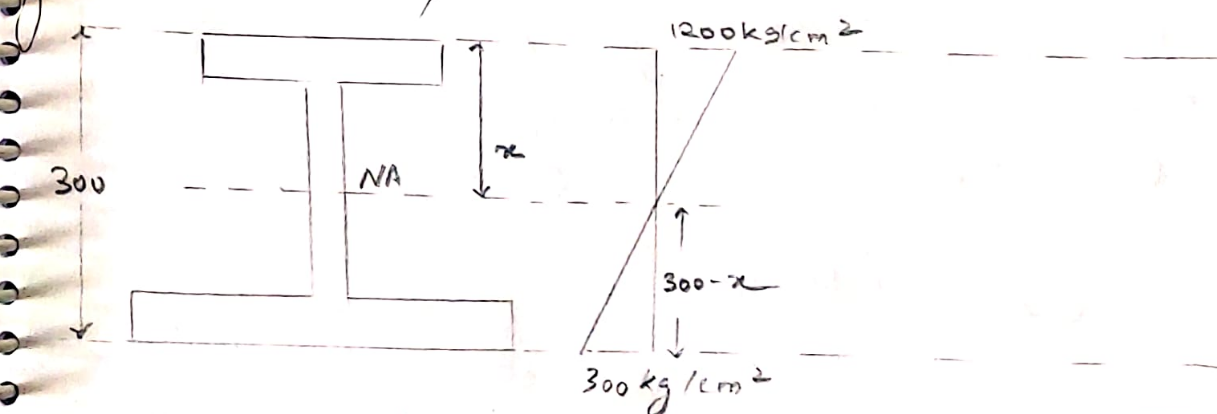 1200kg/cm²
x
300
NA
300-x
300kg/cm²